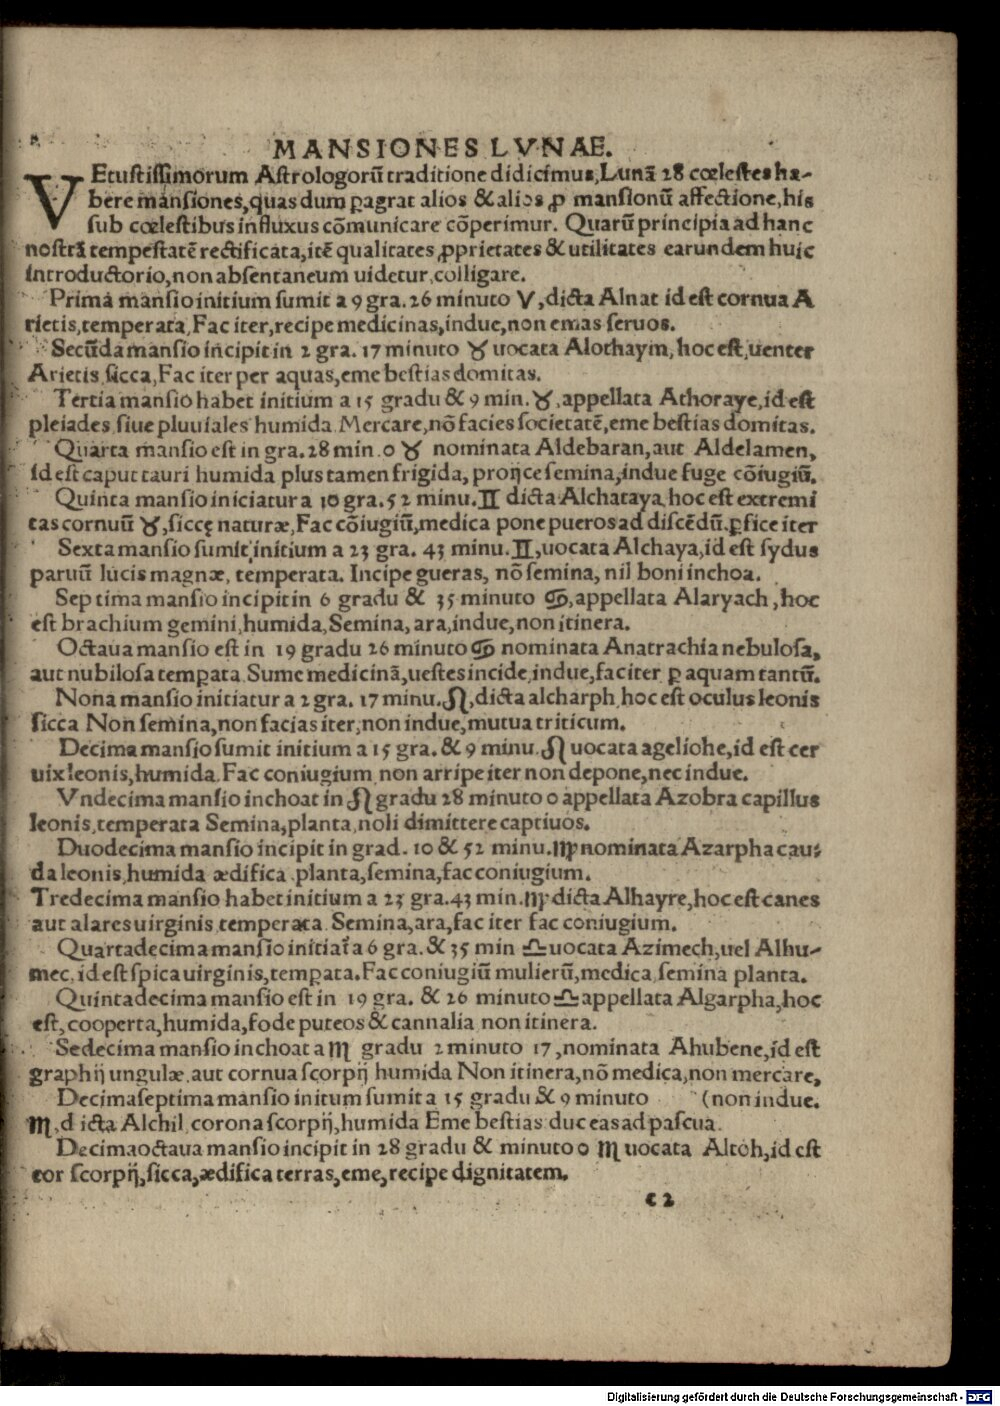 MANSIONES LVNAE.
VEtustissimorum Astrologorũ traditione didicimus, Lunã 28 cœlestes ha-
bere mansiones, quas dum ꝑagrat alios & alios ꝓ mansionũ affectione, his
sub cœlestibus influxus cõmunicare cõperimur. Quarũ principia ad hanc
nostrã tempestatẽ rectificata, itẽ qualitates ꝓprietates & utilitates earundem huic
introductorio, non absentaneum uidetur, colligare.
Prima mansio initium sumit a 9 gra. 26 minuto ♈, dicta Alnat id est cornua A
rietis, temperata, Fac iter, recipe medicinas, indue, non emas seruos.
Secũda mansio incipit in 2 gra. 17 minuto ♉ uocata Alothaym, hoc est, uenter
Arietis, sicca, Fac iter per aquas, eme bestias domitas.
Tertia mansio habet initium a 15 gradu & 9 min. ♉, appellata Athoraye, id est
pleiades, siue pluuiales humida. Mercare, nõ facies societatẽ, eme bestias domitas.
Quarta mansio est in gra. 28 min. 0 ♉ nominata Aldebaran, aut Aldelamen,
id est caput tauri humida plus tamen frigida, proijce semina, indue fuge cõiugiũ.
Quinta mansio iniciatur a 10 gra. 52 minu. ♊ dicta Alchataya, hoc est extremi
tas cornuũ ♉, siccę naturæ, Fac cõiugiũ, medica pone pueros ad discẽdũ. ꝑfice iter
Sexta mansio sumit initium a 23 gra. 43 minu. ♊, uocata Alchaya, id est sydus
paruũ lucis magnæ, temperata. Incipe gueras, nõ semina, nil boni inchoa.
Septima mansio incipit in 6 gradu & 35 minuto ♋, appellata Alaryach, hoc
est brachium gemini, humida, Semina, ara, indue, non itinera.
Octaua mansio est in 19 gradu 26 minuto ♋ nominata Anatrachia nebulosa,
aut nubilosa temꝑata. Sume medicinã, uestes incide, indue, fac iter ꝑ aquam tantũ.
Nona mansio initiatur a 2 gra. 17 minu. ♌, dicta alcharph, hoc est oculus leonis
sicca Non semina, non facias iter, non indue, mutua triticum.
Decima mansio sumit initium a 15 gra. & 9 minu. ♌ uocata ageliohe, id est cer
uix leonis, humida. Fac coniugium, non arripe iter non depone, nec indue.
Vndecima mansio inchoat in ♌ gradu 28 minuto 0 appellata Azobra capillus
leonis, temperata Semina, planta, noli dimittere captiuos.
Duodecima mansio incipit in grad. 10 & 52 minu. ♍ nominata Azarpha cau-
da leonis, humida ædifica, planta, semina, fac coniugium.
Tredecima mansio habet initium a 23 gra. 43 min. ♍ dicta Alhayre, hoc est canes
aut alares uirginis, temperata. Semina, ara, fac iter fac coniugium.
Quartadecima mansio initiat̃a 6 gra. & 35 min ♎ uocata Azimech, uel Alhu-
mec, id est spica uirginis, temꝑata. Fac coniugiũ mulierũ, medica, semina planta.
Quintadecima mansio est in 19 gra. & 26 minuto ♎ appellata Algarpha, hoc
est, cooperta, humida, fode puteos & cannalia non itinera.
Sedecima mansio inchoat a ♏ gradu 2 minuto 17, nominata Ahubene, id est
graphij ungulæ, aut cornua scorpij humida Non itinera, nõ medica, non mercare,
Decimaseptima mansio initum sumit a 15 gradu & 9 minuto (non indue.
♏, d icta Alchil, corona scorpij, humida Eme bestias duc eas ad pascua.
Decimaoctaua mansio incipit in 28 gradu & minuto 0 ♏ uocata Altoh, id est
cor scorpij, sicca, ædifica terras, eme, recipe dignitatem.
c 2
Digitalisierung gefördert durch die Deutsche Forschungsgemeinschaft - DFG